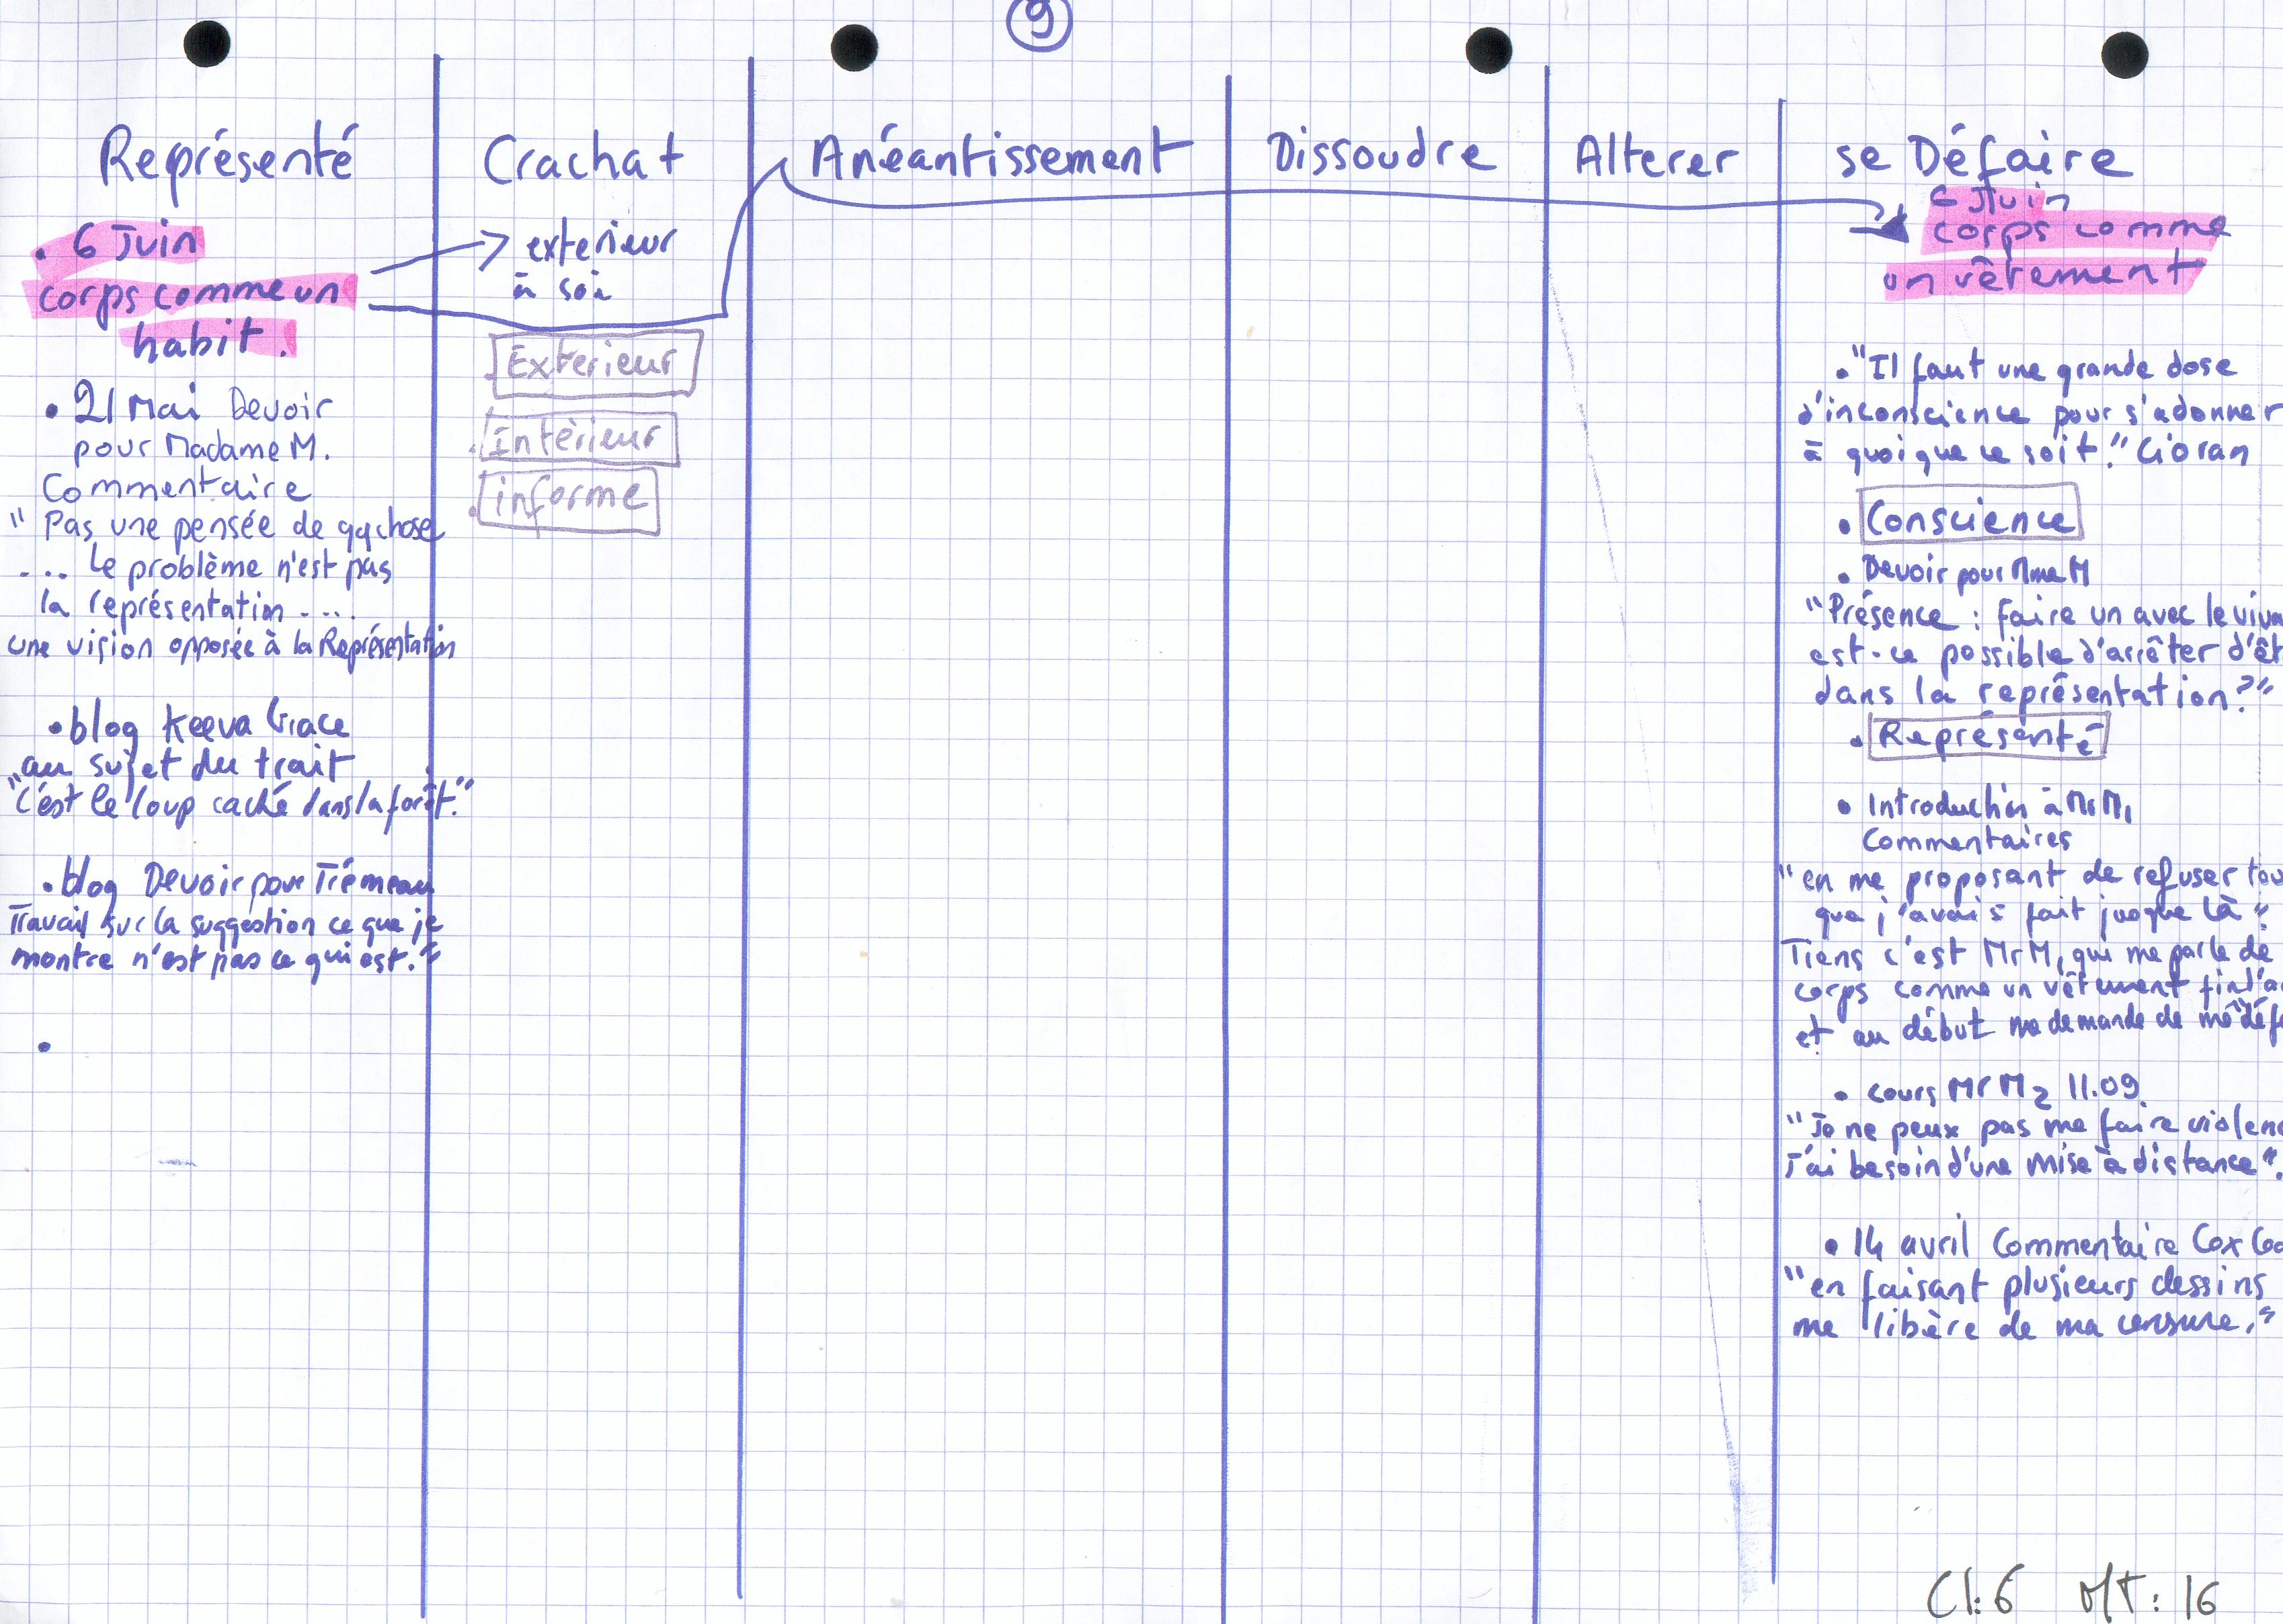 9
Représenté
. 6 Juin
corps comme un
habit.
• 21 Mai Devoir
pour Madame M.
Commentaire
" Pas une pensée de qqchose
... Le problème n'est pas
la représentation ....
une vision opposée à la Représentation
• blog Keeva Grace
au sujet du trait
"C'est le loup caché dans la forêt."
• blog Devoir pour Trémeau
Travail sur la suggestion ce que je
montre n'est pas ce qui est."
•
Crachat
exterieur
à soi
. Exterieur
. Intérieur
. informe
Anéantissement
Dissoudre
Alterer
se Défaire
6 Juin
corps comme
un vêtement
• "Il faut une grande dose
d'inconscience pour s'adonner
à quoique ce soit." Cioran
• Conscience
• Devoir pour Mme M
"Présence : faire un avec le viva
est-ce possible d'arrêter d'êt
dans la représentation ?"
• Représenté
• Introduction à Mr M1
Commentaires
"en me proposant de refuser tou
que j'avais fait jusque là"
Tiens c'est Mr M1 qui me parle de
corps comme un vêtement fin d'a
et au début me demande de me "déf
• cours Mr M2 11.09.
"Je ne peux pas me faire violenc
J'ai besoin d'une mise à distance".
• 14 avril Commentaire Cox
"en faisant plusieurs dessins
me libère de ma censure."
Cl: 6 : 16